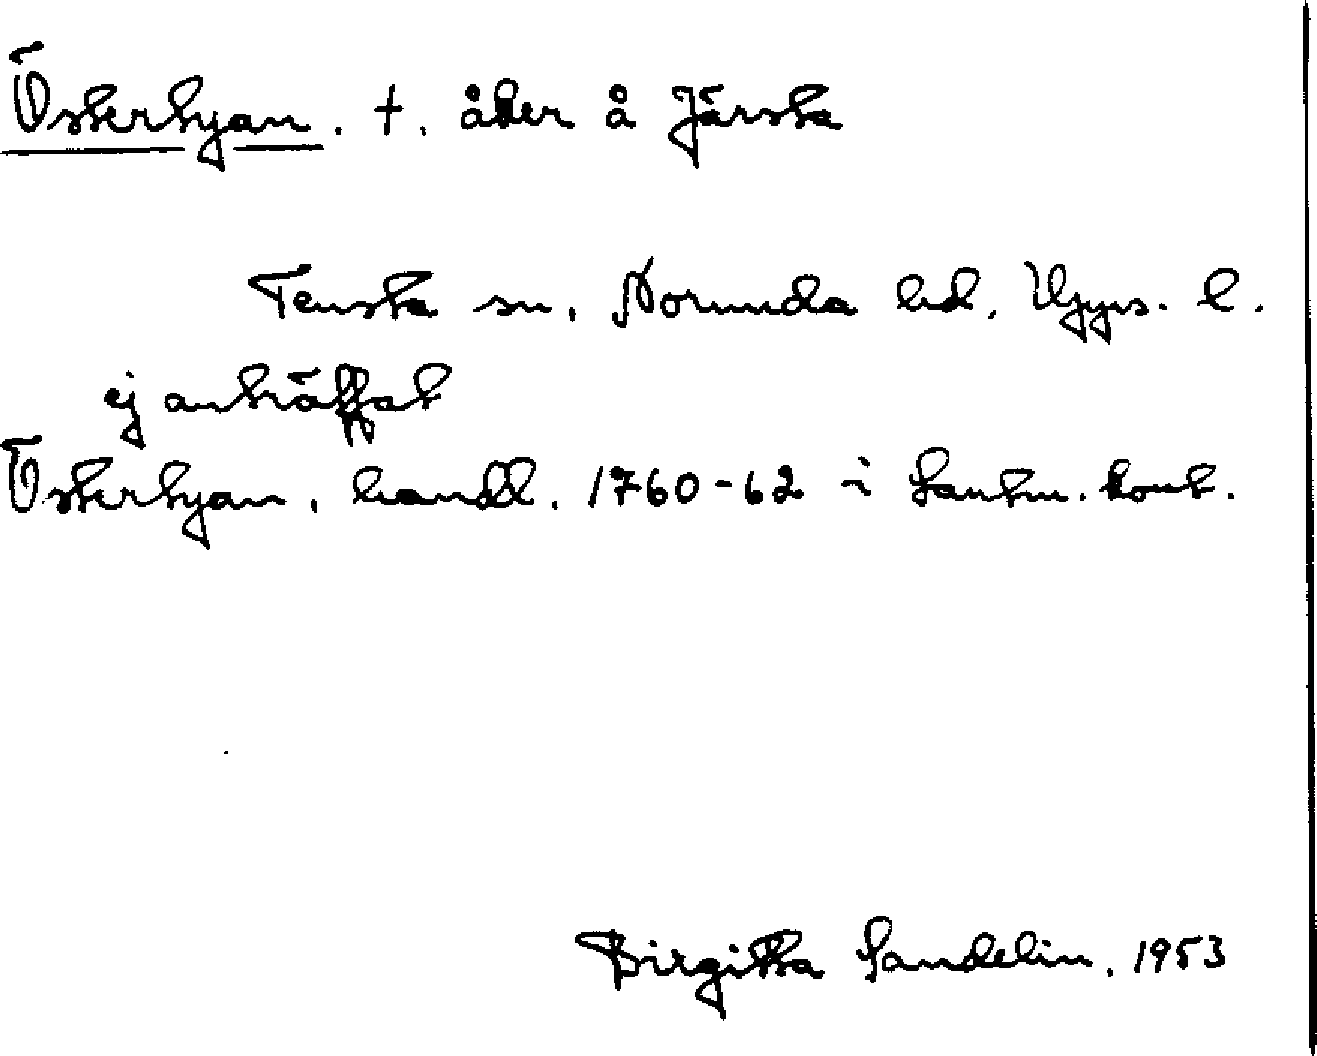 Östertyan. †. åker å Järsta
Tensta sn, Norunda hd, Upps. l.
ej anträffat
Östertyan, handl. 1760-62 i Lantm. kont.
Birgitta Sandelin, 1953